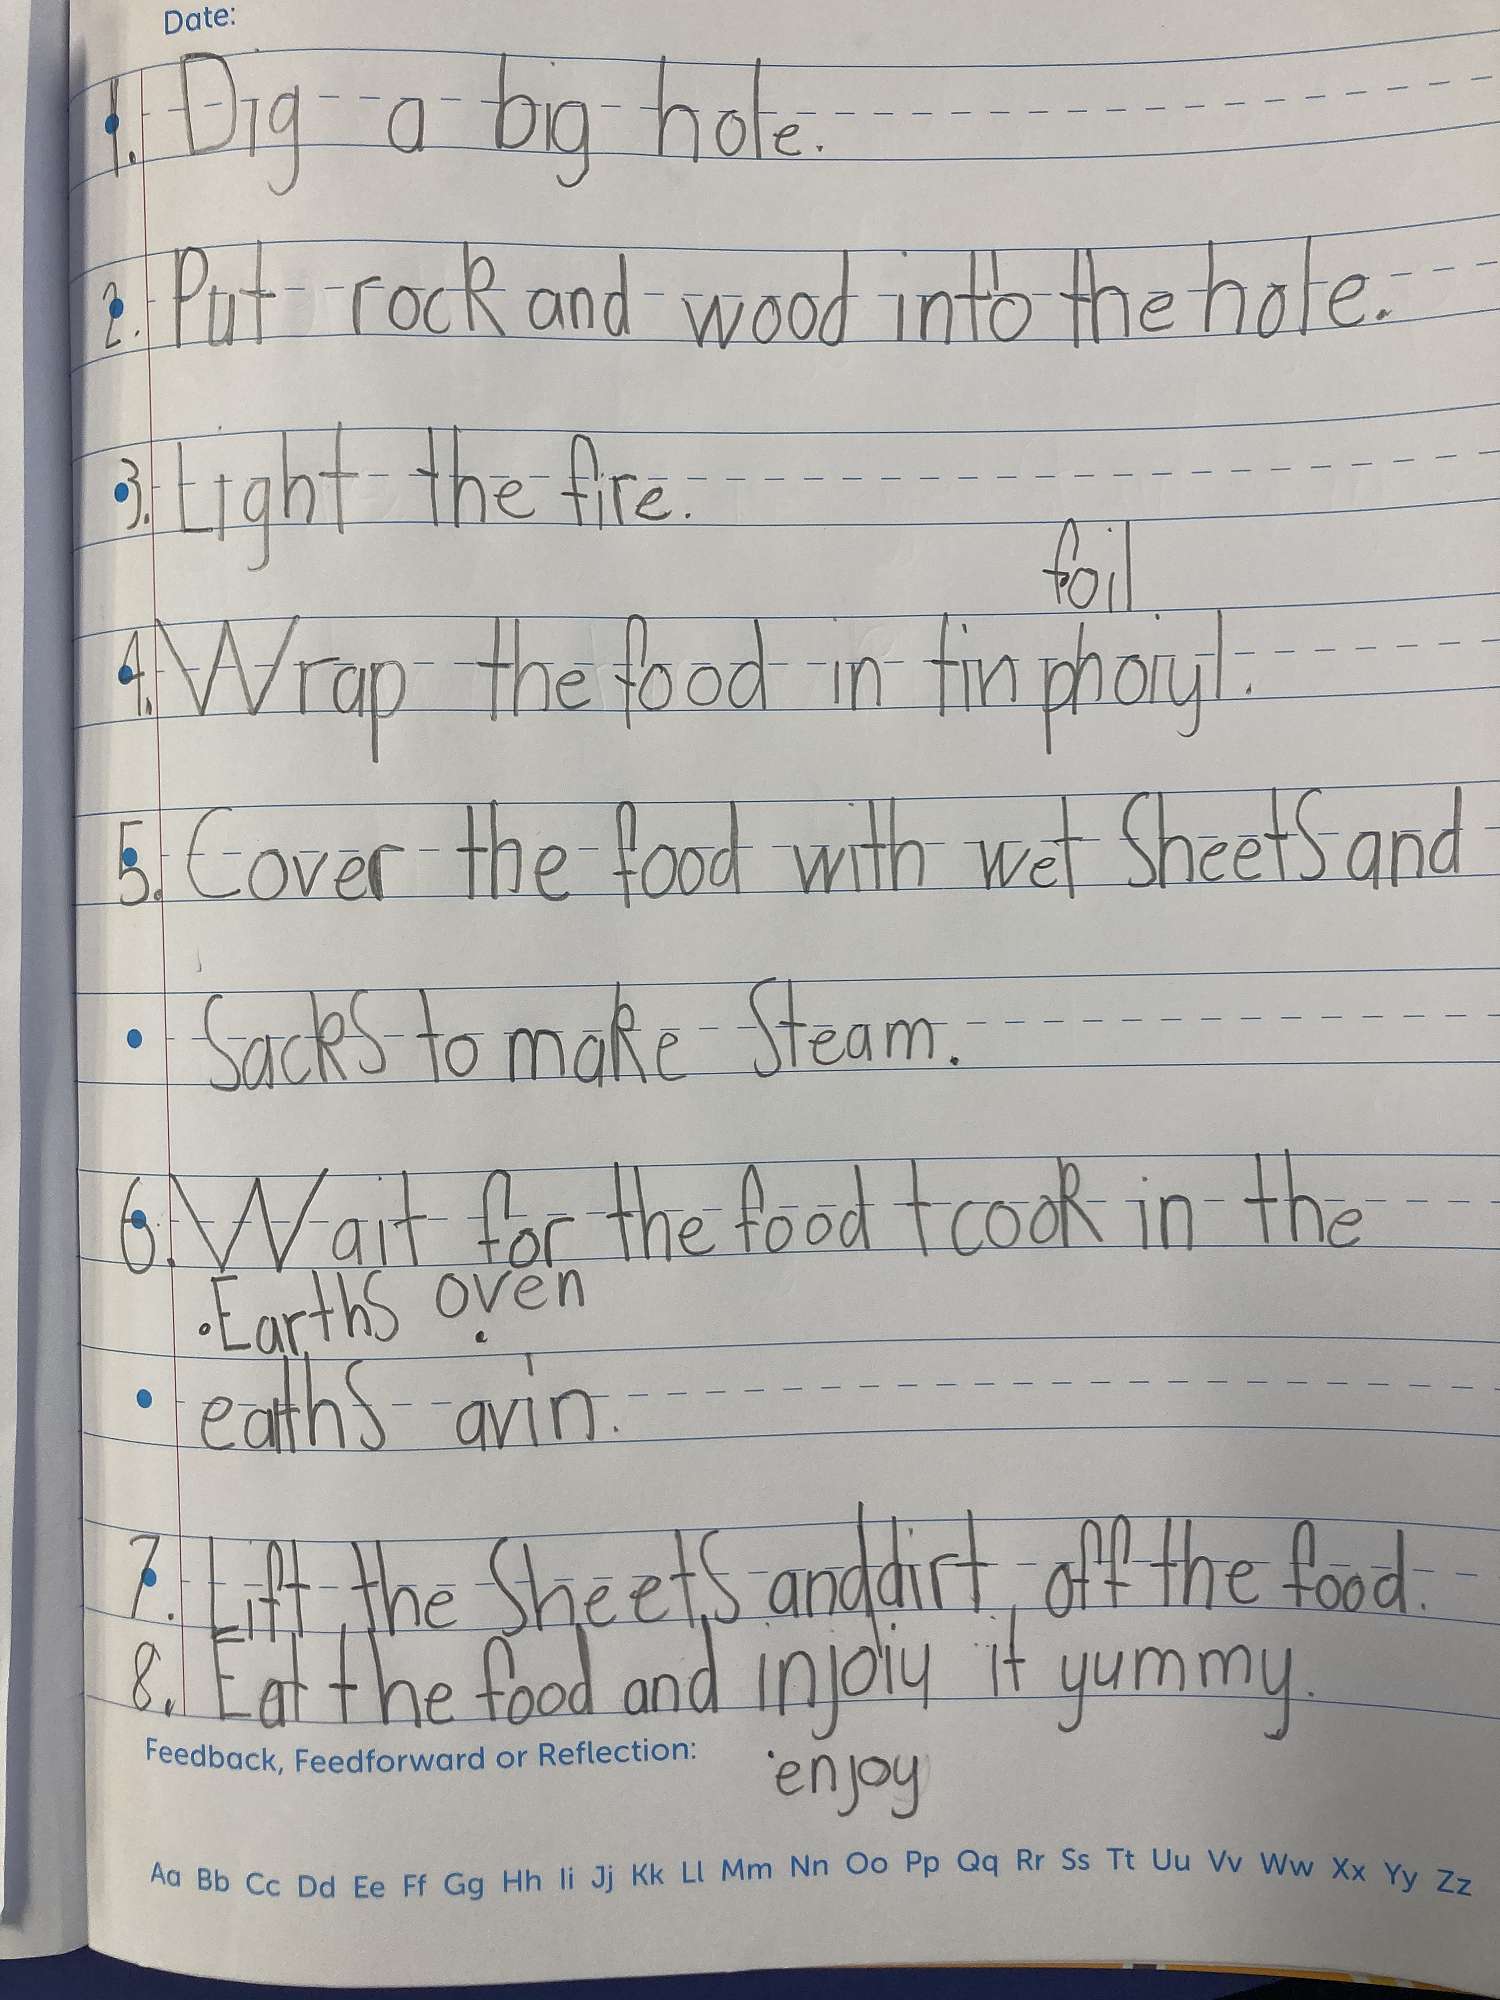 Date:
1. Dig a big hole.
2. Put rock and wood into the hole.
3. Light the fire.
foil
4. Wrap the food in tin phoiyl.
5. Cover the food with wet Sheets and
Sacks to make Steam.
6. Wait for the food t cook in the
Earths oven.
eaths avin.
7. Lift the Sheets and dirt off the food.
8. Eat the food and injoiy it yummy.
Feedback, Feedforward or Reflection:
enjoy
Aa Bb Cc Dd Ee Ff Gg Hh Ii Jj Kk Ll Mm Nn Oo Pp Qq Rr Ss Tt Uu Vv Ww Xx Yy Zz